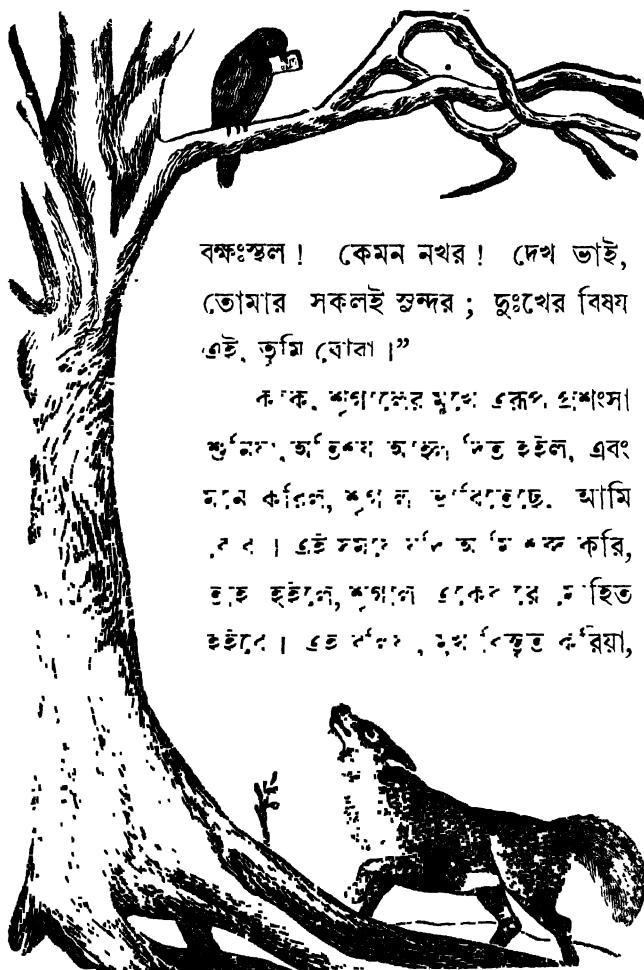 বক্ষঃস্থল ! কেমন নখর ! দেখ ভাই,
তোমার সকলই সুন্দর ; দুঃখের বিষয
এই, তুমি বোবা ।”
কাক, শৃগালের মুখে এরূপ প্রশংসা
শুনিযা, অতিশয আহ্লাদিত হইল, এবং
মনে করিল, শৃগাল ভাবিতেছে, আমি
বোবা । এই সমযে যদি আমি শব্দ করি,
তাহা হইলে, শৃগাল একেবারে মোহিত
হইবে । এই বলিযা, মুখ বিস্তৃত করিয়া,